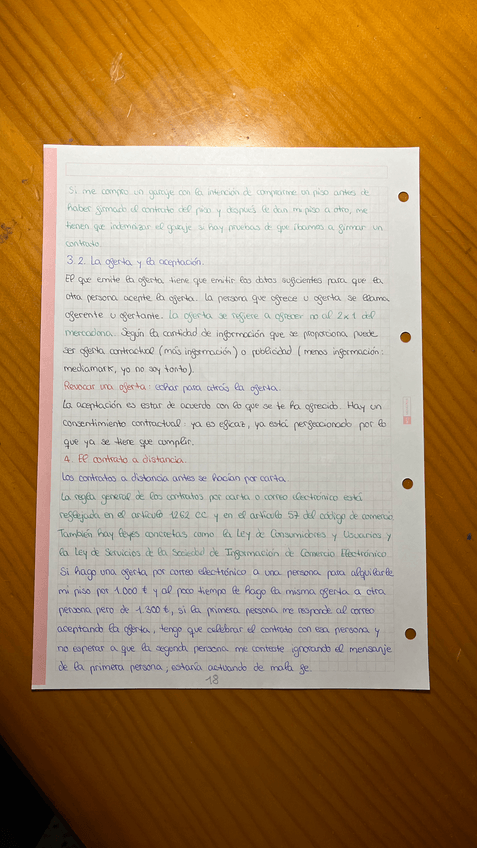 Si me compro un garaje con la intención de comprarme un piso antes de
haber firmado el contrato del piso y después le dan mi piso a otro, me
tienen que indemnizar el garaje si hay pruebas de que íbamos a firmar un
contrato.
3.2. La oferta y la aceptación.
El que emite la oferta tiene que emitir los datos suficientes para que la
otra persona acepte la oferta. La persona que ofrece u oferta se llama
oferente u ofertante. La oferta se refiere a ofrecer no al 2x1 del
mercadona. Según la cantidad de información que se proporciona puede
ser oferta contractual (más información) o publicidad (menos información:
mediamark, yo no soy tonto).
Revocar una oferta: echar para atrás la oferta.
La aceptación es estar de acuerdo con lo que se te ha ofrecido. Hay un
consentimiento contractual: ya es eficaz, ya está perfeccionado por lo
que ya se tiene que cumplir.
4. El contrato a distancia.
Los contratos a distancia antes se hacían por carta.
La regla general de los contratos por carta o correo electrónico está
reflejada en el artículo 1262 CC y en el artículo 57 del código de comercio
También hay leyes concretas como la Ley de Consumidores y Usuarios y
la Ley de Servicios de la Sociedad de Información de Comercio Electrónico
Si hago una oferta por correo electrónico a una persona para alquilarle
mi piso por 1.000 € y al poco tiempo le hago la misma oferta a otra
persona pero de 1.300 €, si la primera persona me responde al correo
aceptando la oferta, tengo que celebrar el contrato con esa persona y
no esperar a que la segunda persona me conteste ignorando el mensaje
de la primera persona, estaría actuando de mala fe.
18